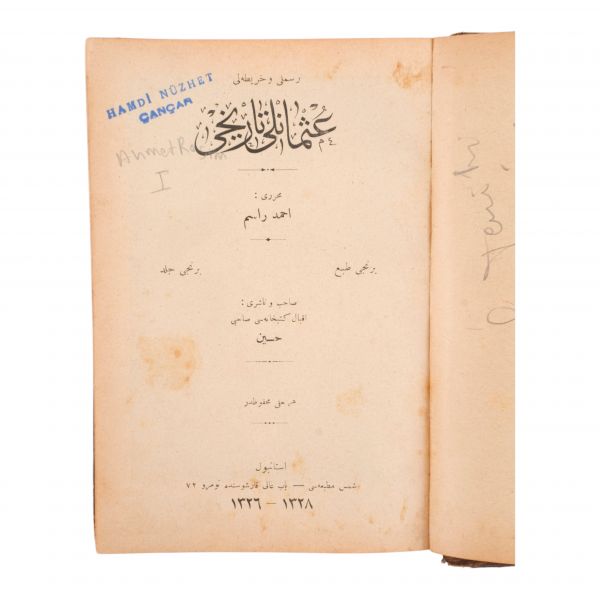 رسملی و خریطه‌لی
HAMDİ NÜZHET
ÇANÇAR
عثمانلی تاریخی
Ahmet Rasim
I
محرری :
احمد راسم
برنجی طبع
برنجی جلد
صاحب و ناشری :
اقبال كتبخانه‌سی صاحبی
حسین
هر حقی محفوظدر
استانبول
شمس مطبعه‌سی — باب عالی قارشوسنده نومرو ٧٢
١٣٢٨ — ١٣٢٦